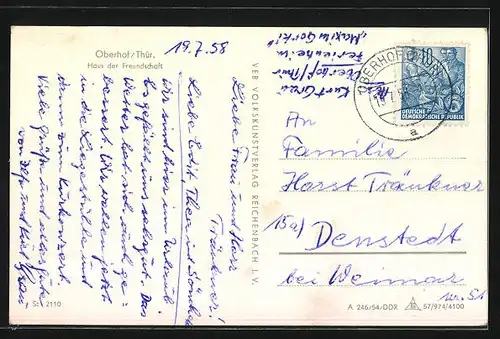 Oberhof/Thür.
Haus der Freundschaft
19.7.58
Liebe Frau und Herr
Tränkner!
Liebe Edith, Thea und Sönke
Wir sind hier im Urlaub
Es gefällt uns sehr gut. Das
Wetter hat sich auch ge-
bessert. Wir wollen jetzt
in die Liegestühle und
dann zum Kurkonzert.
Viele Grüße und alles Gute
von und Kurt
St 2110
VEB VOLKSKUNSTVERLAG REICHENBACH I. V.
Kurt
Oberhof/Thür
Ferienheim
„Maxim Gorki"
OBERHOF
10
DEUTSCHE
DEMOKRATISCHE REPUBLIK
a
An
Familie
Horst Tränkner
15a)
Denstedt
bei Weimar
A 246/54/DDR 57/974/4100